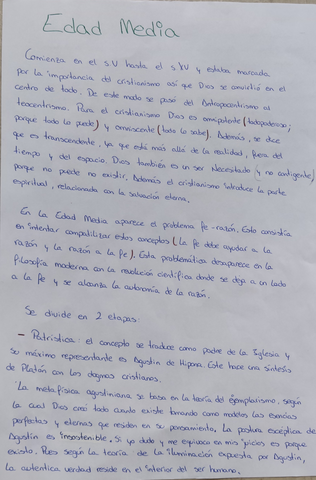 Edad Media
Comienza en el s.V hasta el s.XV y estaba marcada
por la importancia del cristianismo así que Dios se convirtió en el
centro de todo. De este modo se pasó del Antropocentrismo al
teocentrismo. Para el cristianismo Dios es omnipotente (todopoderoso;
porque todo lo puede) y omnisciente (todo lo sabe). Además, se dice
que es transcendente, ya que está más allá de la realidad, fuera del
tiempo y del espacio. Dios también es un ser Necesitado (y no contingente)
porque no puede no existir. Además el cristianismo introduce la parte
espiritual, relacionada con la salvación eterna.
En la Edad Media aparece el problema fe-razón. Esto consistía
en intentar compatibilizar estos conceptos (La fe debe ayudar a la
razón y la razón a la fe). Esta problemática desaparece en la
filosofía moderna con la revolución científica donde se deja a un lado
a la fe y se alcanza la autonomía de la razón.
Se divide en 2 etapas:
- Patrística: el concepto se traduce como padre de la Iglesia y
su máximo representante es Agustín de Hipona. Este hace una síntesis
de Platón con los dogmas cristianos.
La metafísica agustiniana se basa en la teoría del Ejemplarismo, según
la cual Dios creó todo cuanto existe tomando como modelos las esencias
perfectas y eternas que residen en su pensamiento. La postura escéptica de
Agustín es insostenible, si yo dudo y me equivoco en mis juicios es porque
existo. Pues según la teoría de la iluminación expuesta por Agustín,
la autentica verdad reside en el interior del ser humano.